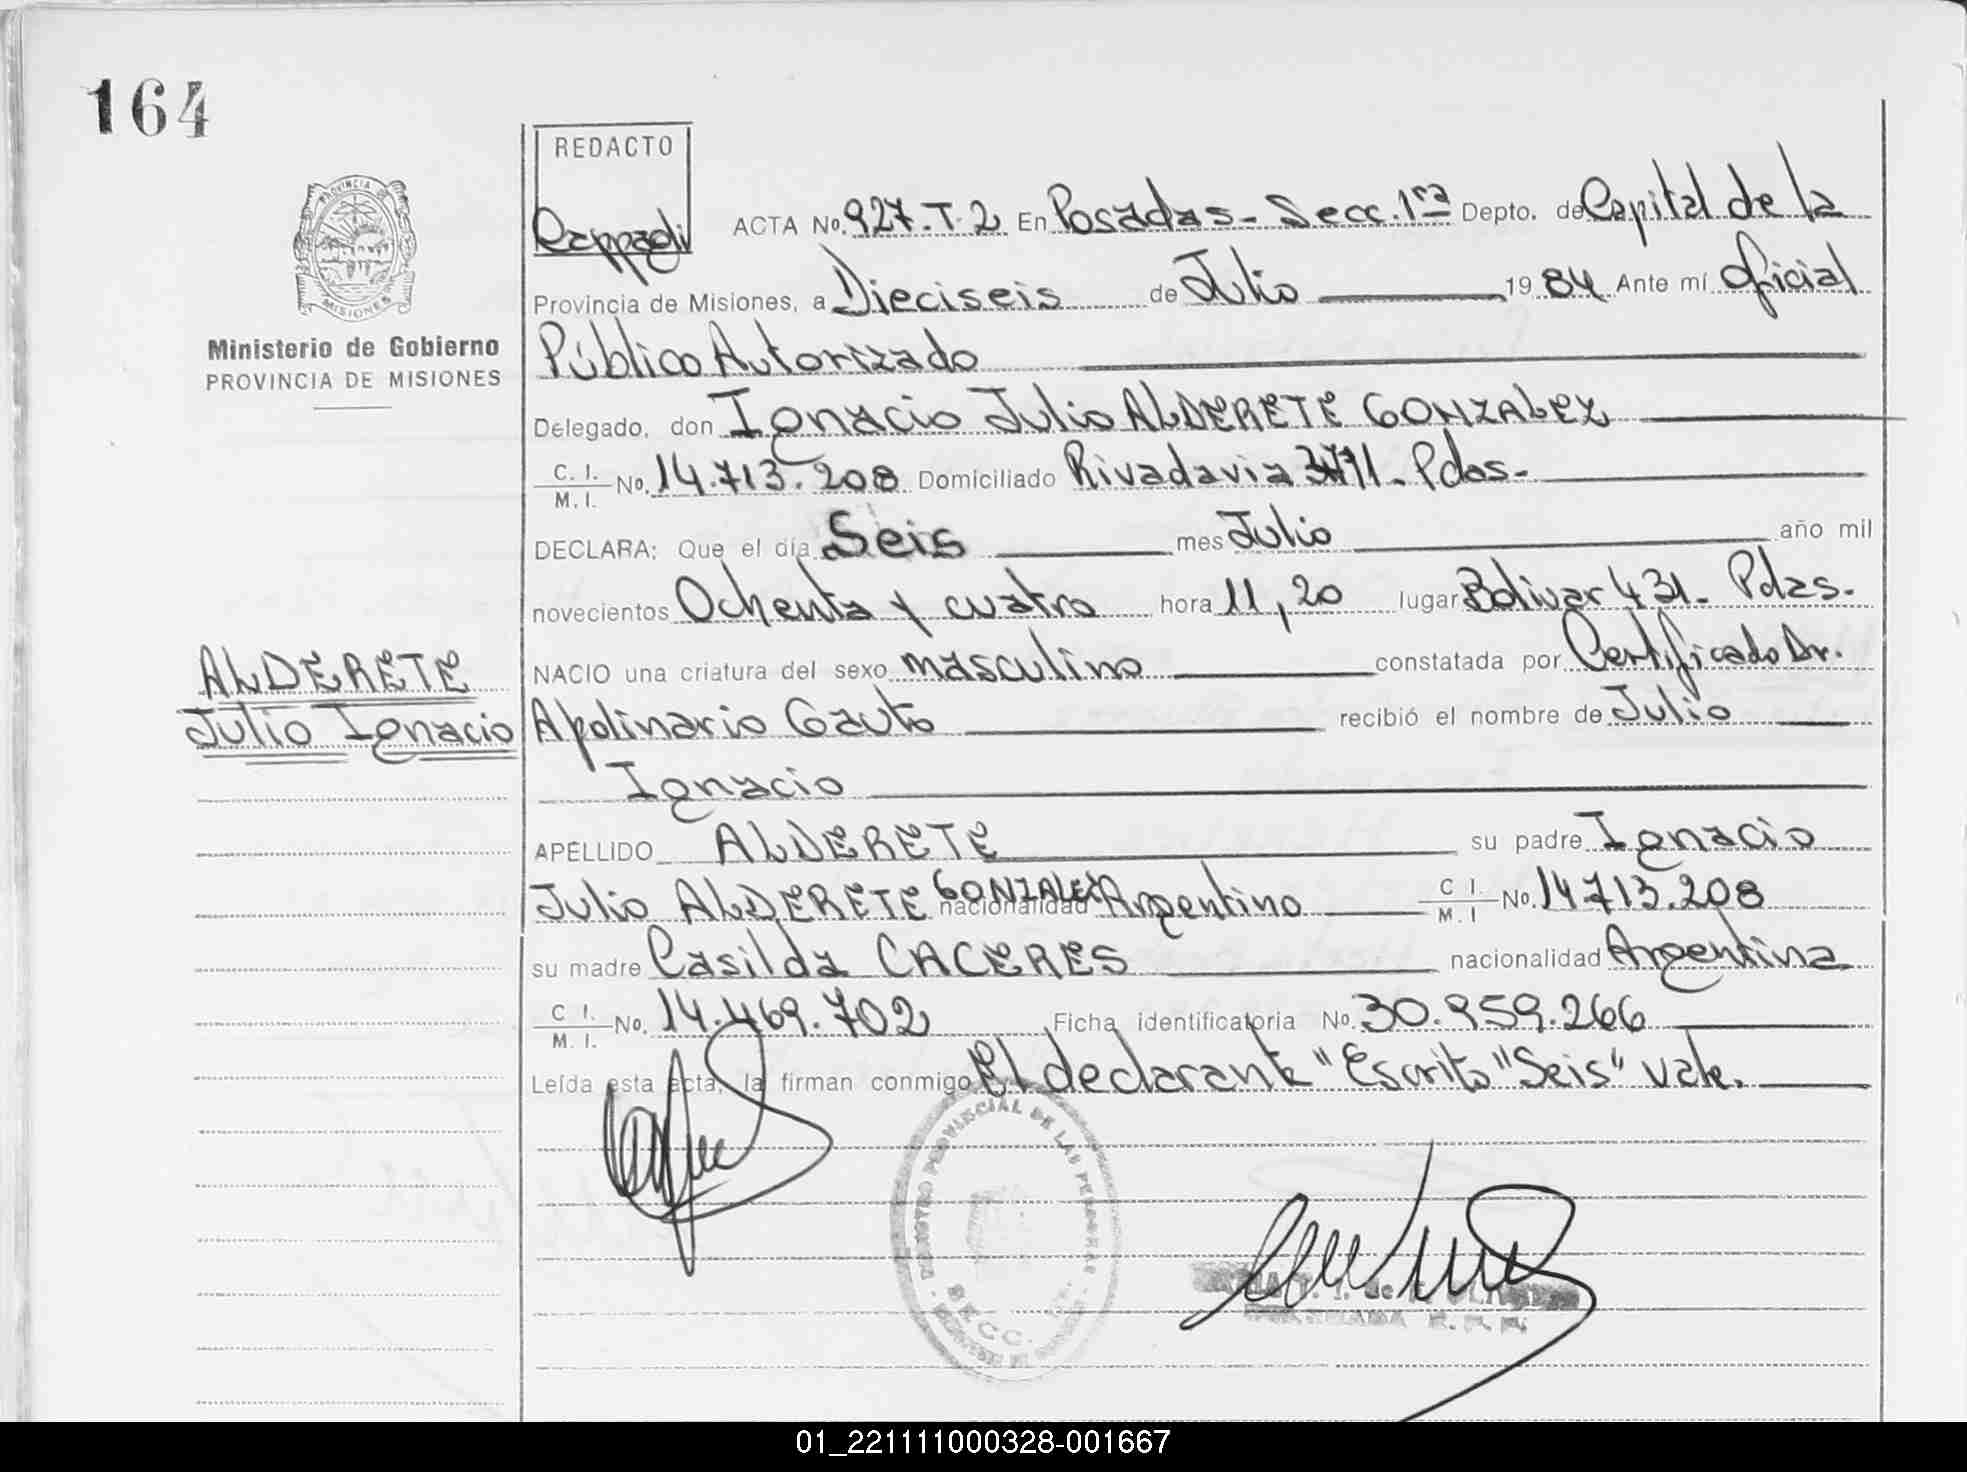 164
REDACTO
PROVINCIA DE MISIONES
Ministerio de Gobierno
PROVINCIA DE MISIONES
ACTA No. 927.T.2 En Posadas - Secc. 1ra Depto. de Capital de la
Provincia de Misiones, a Dieciseis de Julio 1984 Ante mí Oficial
Público Autorizado
Delegado, don Ignacio Julio ALDERETE GONZALEZ
C. I. M. I. No. 14.713.208 Domiciliado Rivadavia Pdas-
DECLARA: Que el día Seis mes Julio año mil
novecientos Ochenta y cuatro hora 11,20 lugar Bolivar 431- Pdas.
NACIO una criatura del sexo masculino constatada por Certificado Dr.
Apolinario Gauto recibió el nombre de Julio
Ignacio
ALDERETE
Julio Ignacio
APELLIDO ALDERETE su padre Ignacio
Julio ALDERETE GONZALEZ nacionalidad Argentino C I. M. I No. 14.713.208
su madre Casilda CACERES nacionalidad Argentina
C I. M. I. No. 14.469.702 Ficha identificatoria No. 30.959.266
Leída esta acta, la firman conmigo El declarante "Escrito "Seis" vale.
REGISTRO PROVINCIAL DE LAS PERSONAS
SECC.
01_221111000328-001667